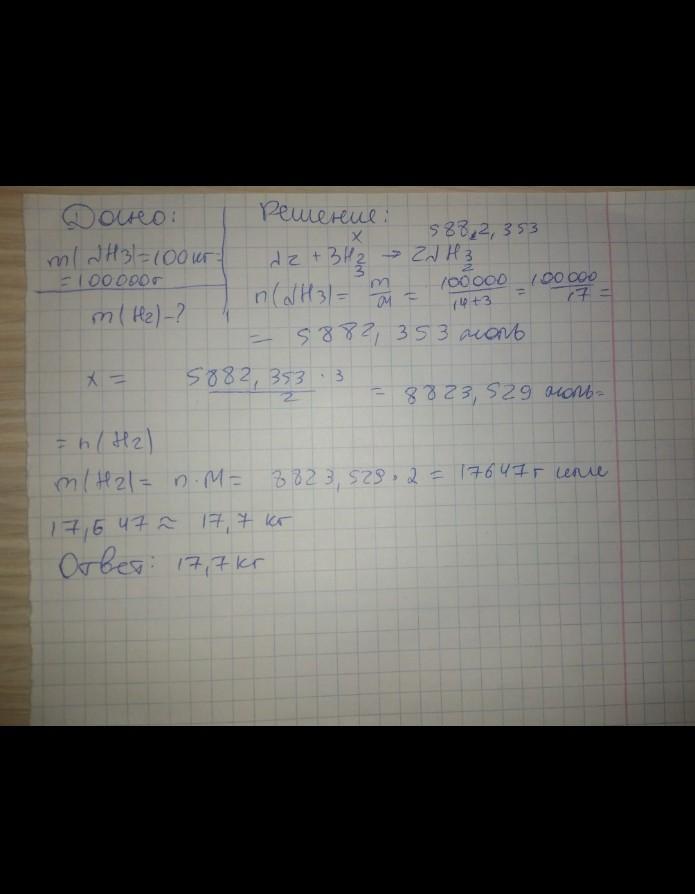 Дано:
m(NH3)=100кг=
=100000г
m(H2)-?
Решение:
x 5882,353
N2 + 3H2 → 2NH3
3 2
n(NH3)= m/M = 100000/14+3 = 100000/17 =
= 5882,353 моль
x = 5882,353 · 3/2 = 8823,529 моль=
= n(H2)
m(H2)= n·M= 8823,529·2 = 17647г или
17,647 ≈ 17,7 кг
Ответ: 17,7кг